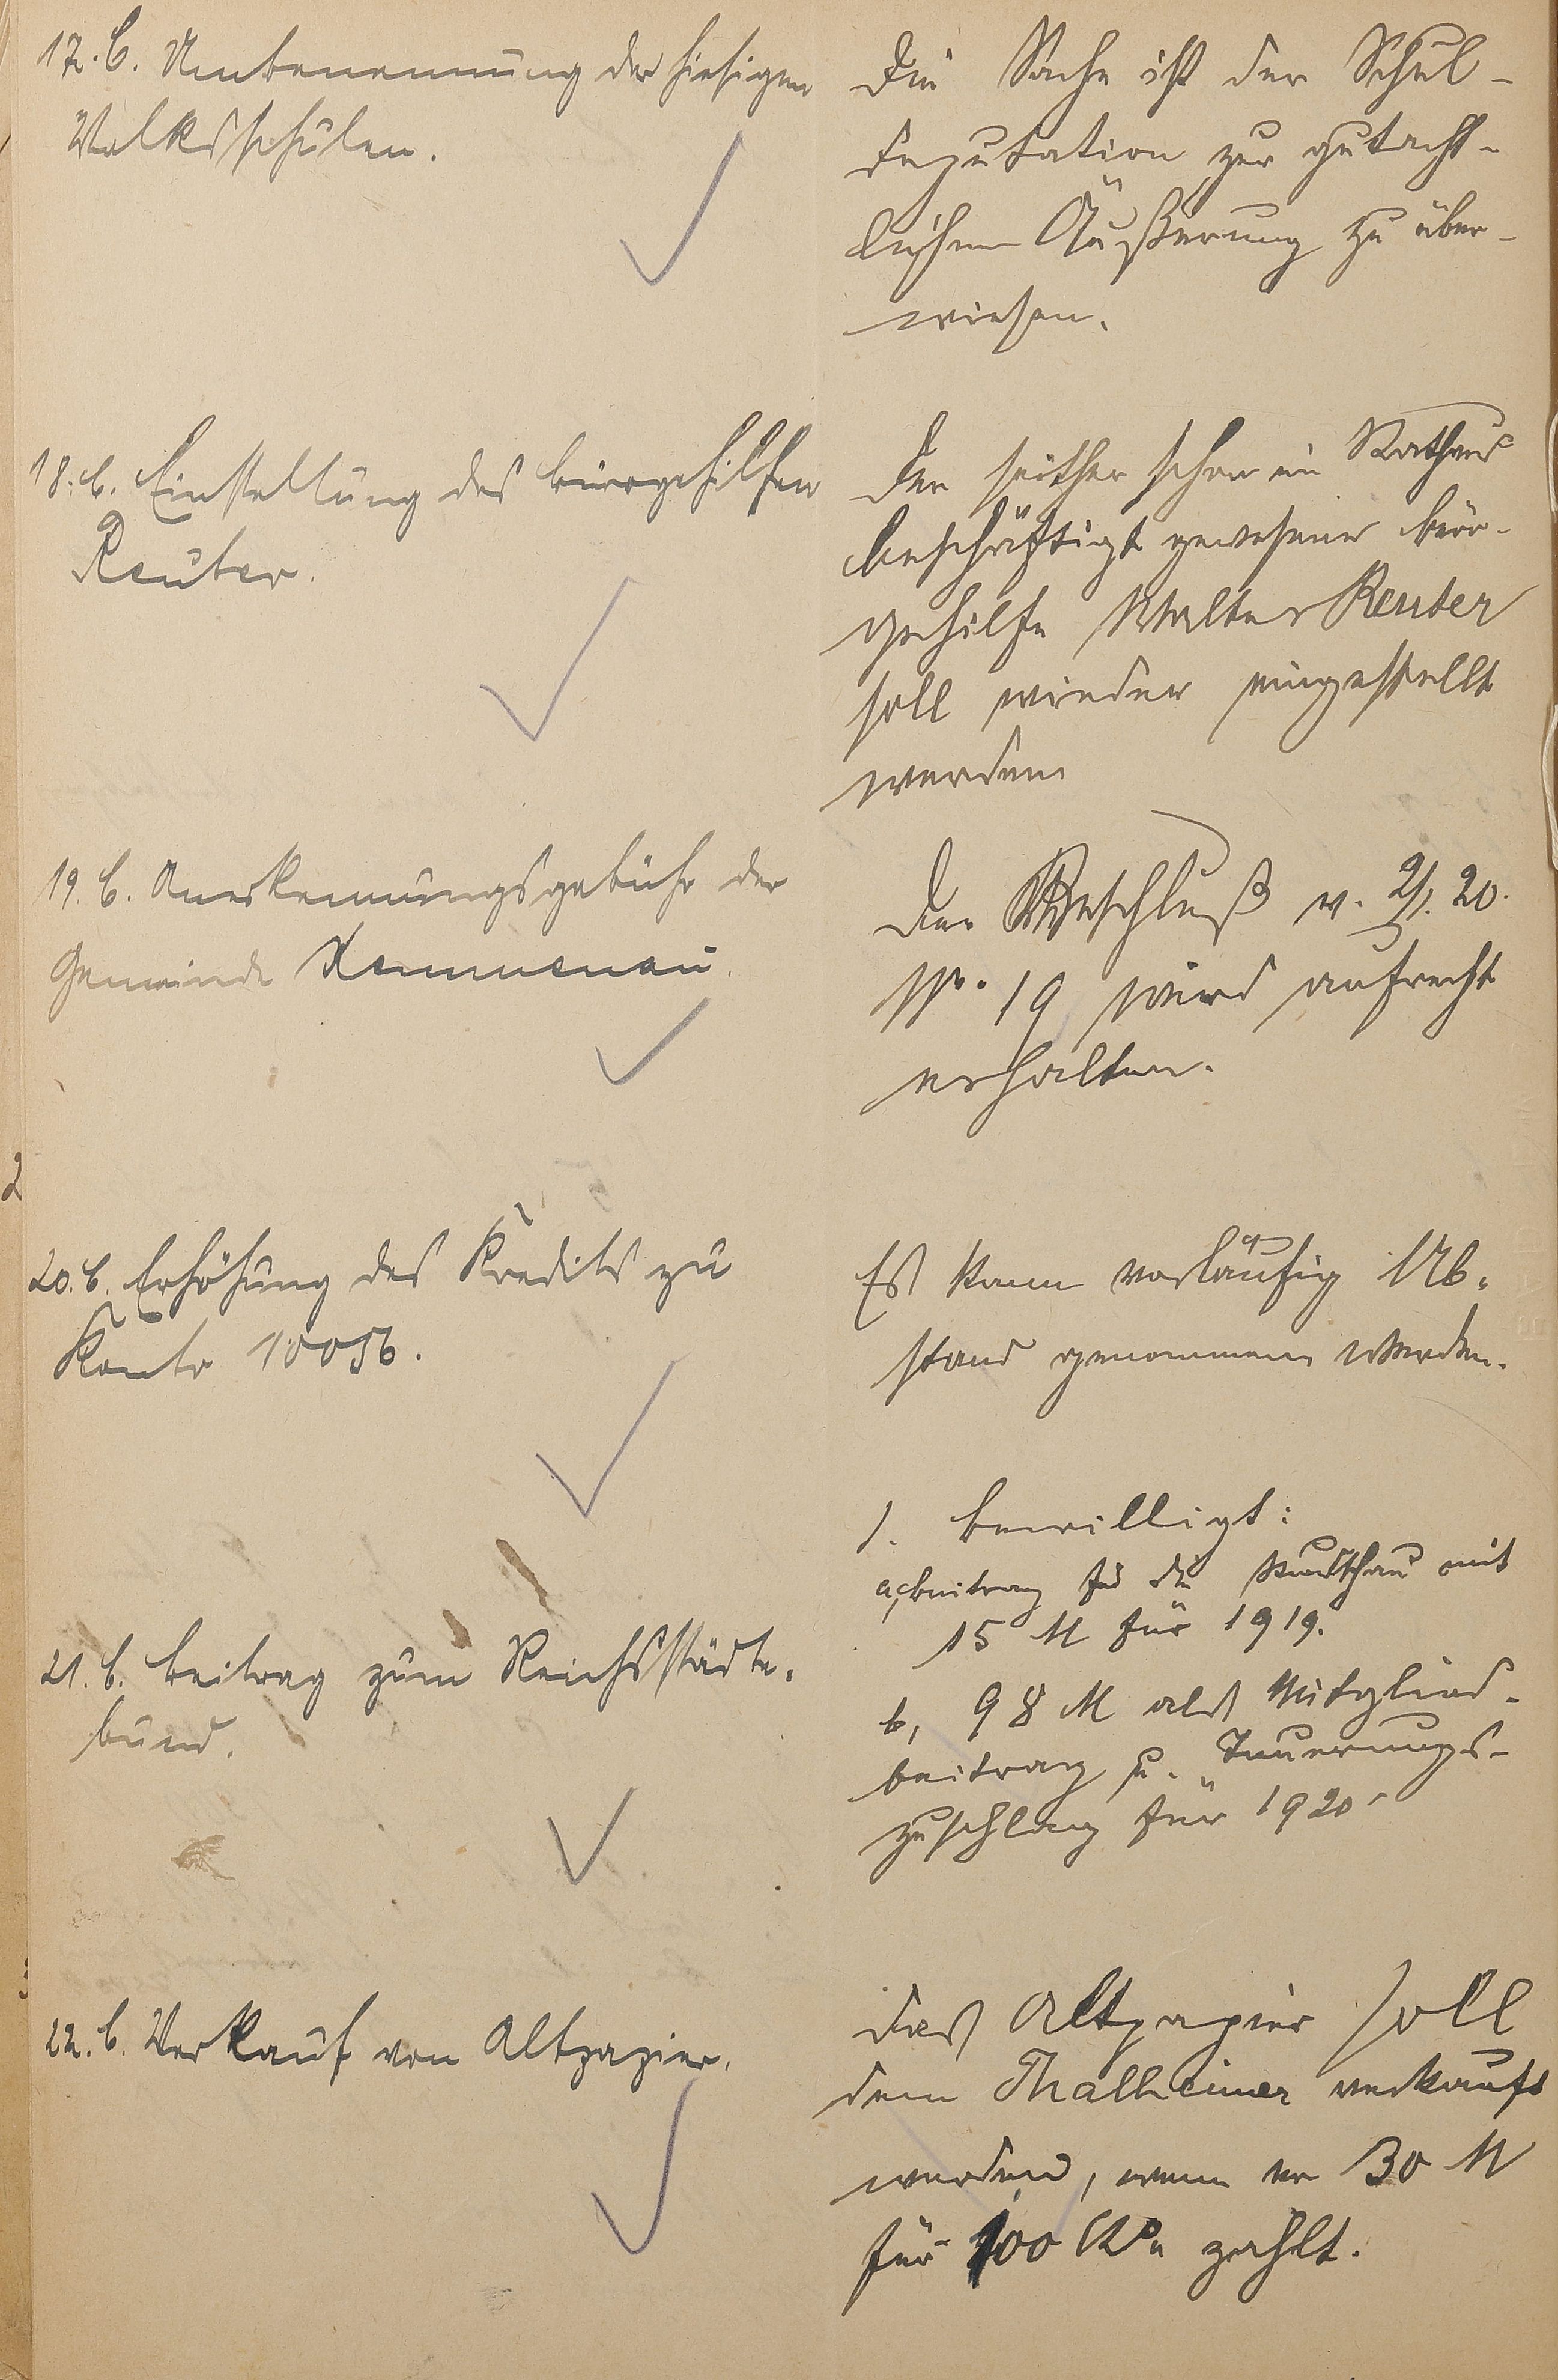 17. b. Umbenennung der hiesigen
Volksschulen.
Die Sache ist der Schul-
deputation zur gutacht-
lichen Äußerung zu über-
wiesen.
18. b. Einstellung des Bürogehilfen
Reuter.
Der seither schon im Rathaus
beschäftigt gewesene Büro-
gehilfe Walter Reuter
soll wieder eingestellt
werden
19. b. Anerkennungsgebühr der
Gemeinde Kemmenau.
Der Beschluß v. 2/1. 20.
No. 19 wird aufrecht
erhalten.
20. b. Erhöhung des Kredits zu
Konto 10056.
Es kann vorläufig Ab-
stand genommen werden.
21. b. Beitrag zum Reichsstädte-
bund.
1. Bewilligt:
a, Beitrag für die mit
15 M für 1919.
b, 98 M als Mitglied-
beitrag u. Teuerungs-
zuschlag für 1920
22. b. Verkauf von Altpapier.
Das Altpapier soll
dem Thalheimer verkauft
werden, wenn er 30 M
für 100 Ko zahlt.